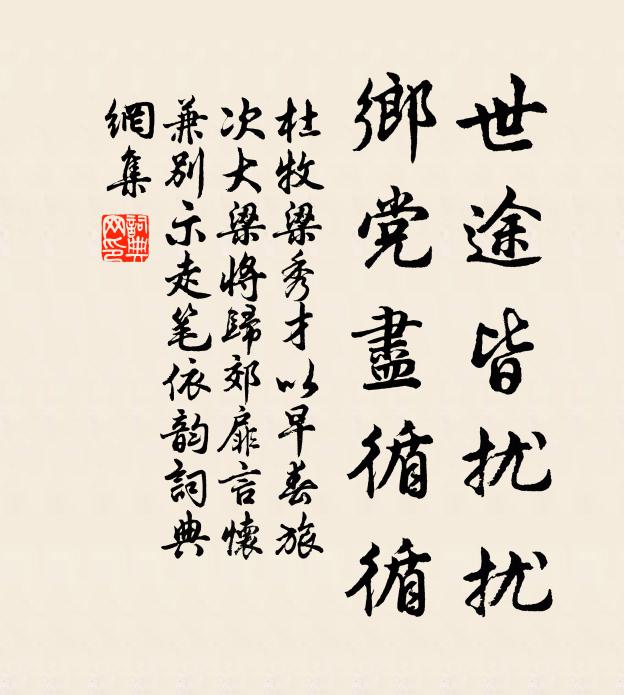 世途皆扰扰
鄉党盡循循
杜牧梁秀才以早春旅
次大梁將歸郊扉言懷
兼別示走笔依韵詞典
網集
詞典
网印